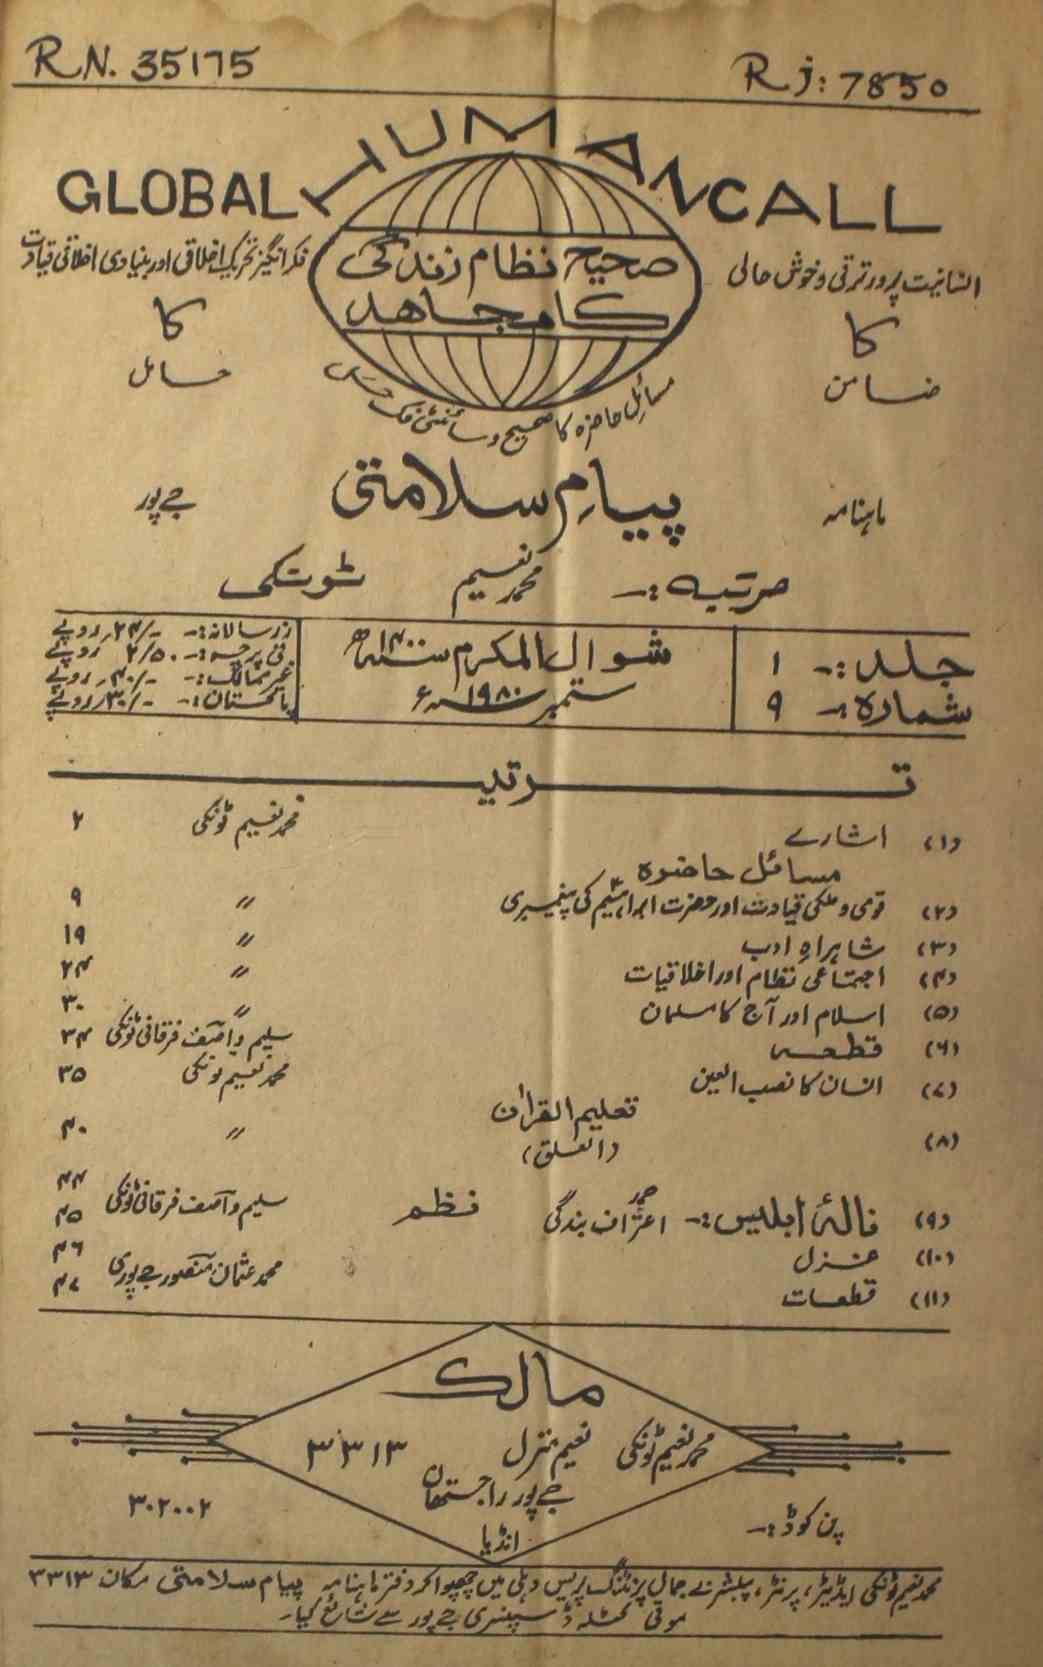 R.N. 35175
Rj: 7850
GLOBAL HUMAN CALL
صحیح نظام زندگی
کا مجاہد
انسانیت پرور ترقی و خوش حالی
کا
ضامن
فکر انگیز تحریک اخلاقی اور بنیادی اخلاقی قیادت
کا
حامل
مسائل حاضرہ کا صحیح و سائنٹی فک حل
ماہنامہ
پیامِ سلامتی
جے پور
مرتبہ:- محمد نعیم ٹونکی
جلد:- ۱
شمارہ:- ۹
شوال المکرم سنہ ۱۴۰۰ھ
ستمبر سنہ ۱۹۸۰ء
زر سالانہ:- ۲۴/- روپے
فی پرچہ:- ۲/۵۰ روپے
غیر ممالک:- ۴۰/- روپے
پاکستان:- ۳۰/- روپے
ترتیب
(۱) اشارے محمد نعیم ٹونکی ۲
مسائل حاضرہ
(۲) قومی و ملکی قیادت اور حضرت ابراہیمؑ کی پیغمبری 〃 ۹
(۳) شاہراہِ ادب 〃 ۱۹
(۴) اجتماعی نظام اور اخلاقیات 〃 ۲۴
(۵) اسلام اور آج کا مسلمان 〃 ۳۰
(۶) قطعہ سلیم و آصف فرقانی ٹونکی ۳۴
(۷) انسان کا نصب العین محمد نعیم ٹونکی ۳۵
تعلیم القرآن
(۸) (العلق) 〃 ۴۰
حمد ۴۴
(۹) نالۂ ابلیس:- اعتراف بندگی نظم سلیم و آصف فرقانی ٹونکی ۴۵
(۱۰) غزل ۴۶
(۱۱) قطعات محمد عثمان منصور جے پوری ۴۷
مالک
محمد نعیم ٹونکی نعیم منزل ۳۳۱۳
جے پور راجستھان
انڈیا
پن کوڈ:- ۳۰۲۰۰۲
محمد نعیم ٹونکی ایڈیٹر، پرنٹر، پبلشر نے جمال پرنٹنگ پریس دہلی میں چھپوا کر دفتر ماہنامہ پیام سلامتی مکان ۳۳۱۳
موتی کٹلہ ڈسپنسری جے پور سے شائع کیا۔